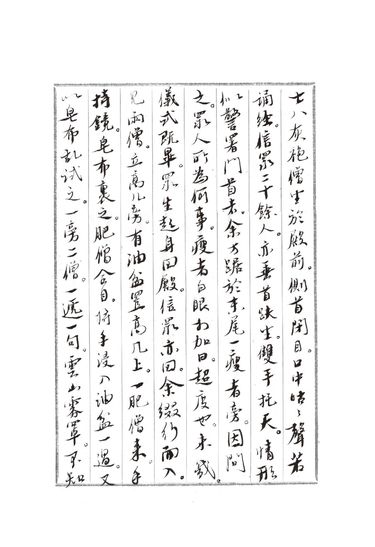 七八灰袍僧坐於殿前。側首閉目口中聲若
誦經。信眾二十餘人。亦垂首趺坐。雙手托天。情形
似警署門首。余方踞於末尾一瘦者旁。因問
之眾人所為何事。瘦者白眼加曰。超度也。未幾。
儀式既畢。眾生起身回殿。信眾亦回。余綴行而入。
見兩僧。立高几旁。有油盆置高几上。一肥僧手
持鏡。皂布裹之。肥僧合目。手浸入油盆一過。又
以皂布乱試之。一旁二僧。一遞一句。雲山霧罩。不知